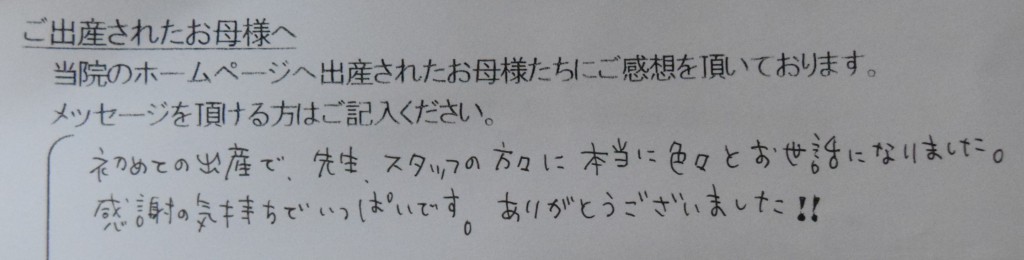 ご出産されたお母様へ
当院のホームページへ出産されたお母様たちにご感想を頂いております。
メッセージを頂ける方はご記入ください。
初めての出産で、先生、スタッフの方々に本当に色々とお世話になりました。
感謝の気持ちでいっぱいです。ありがとうございました!!